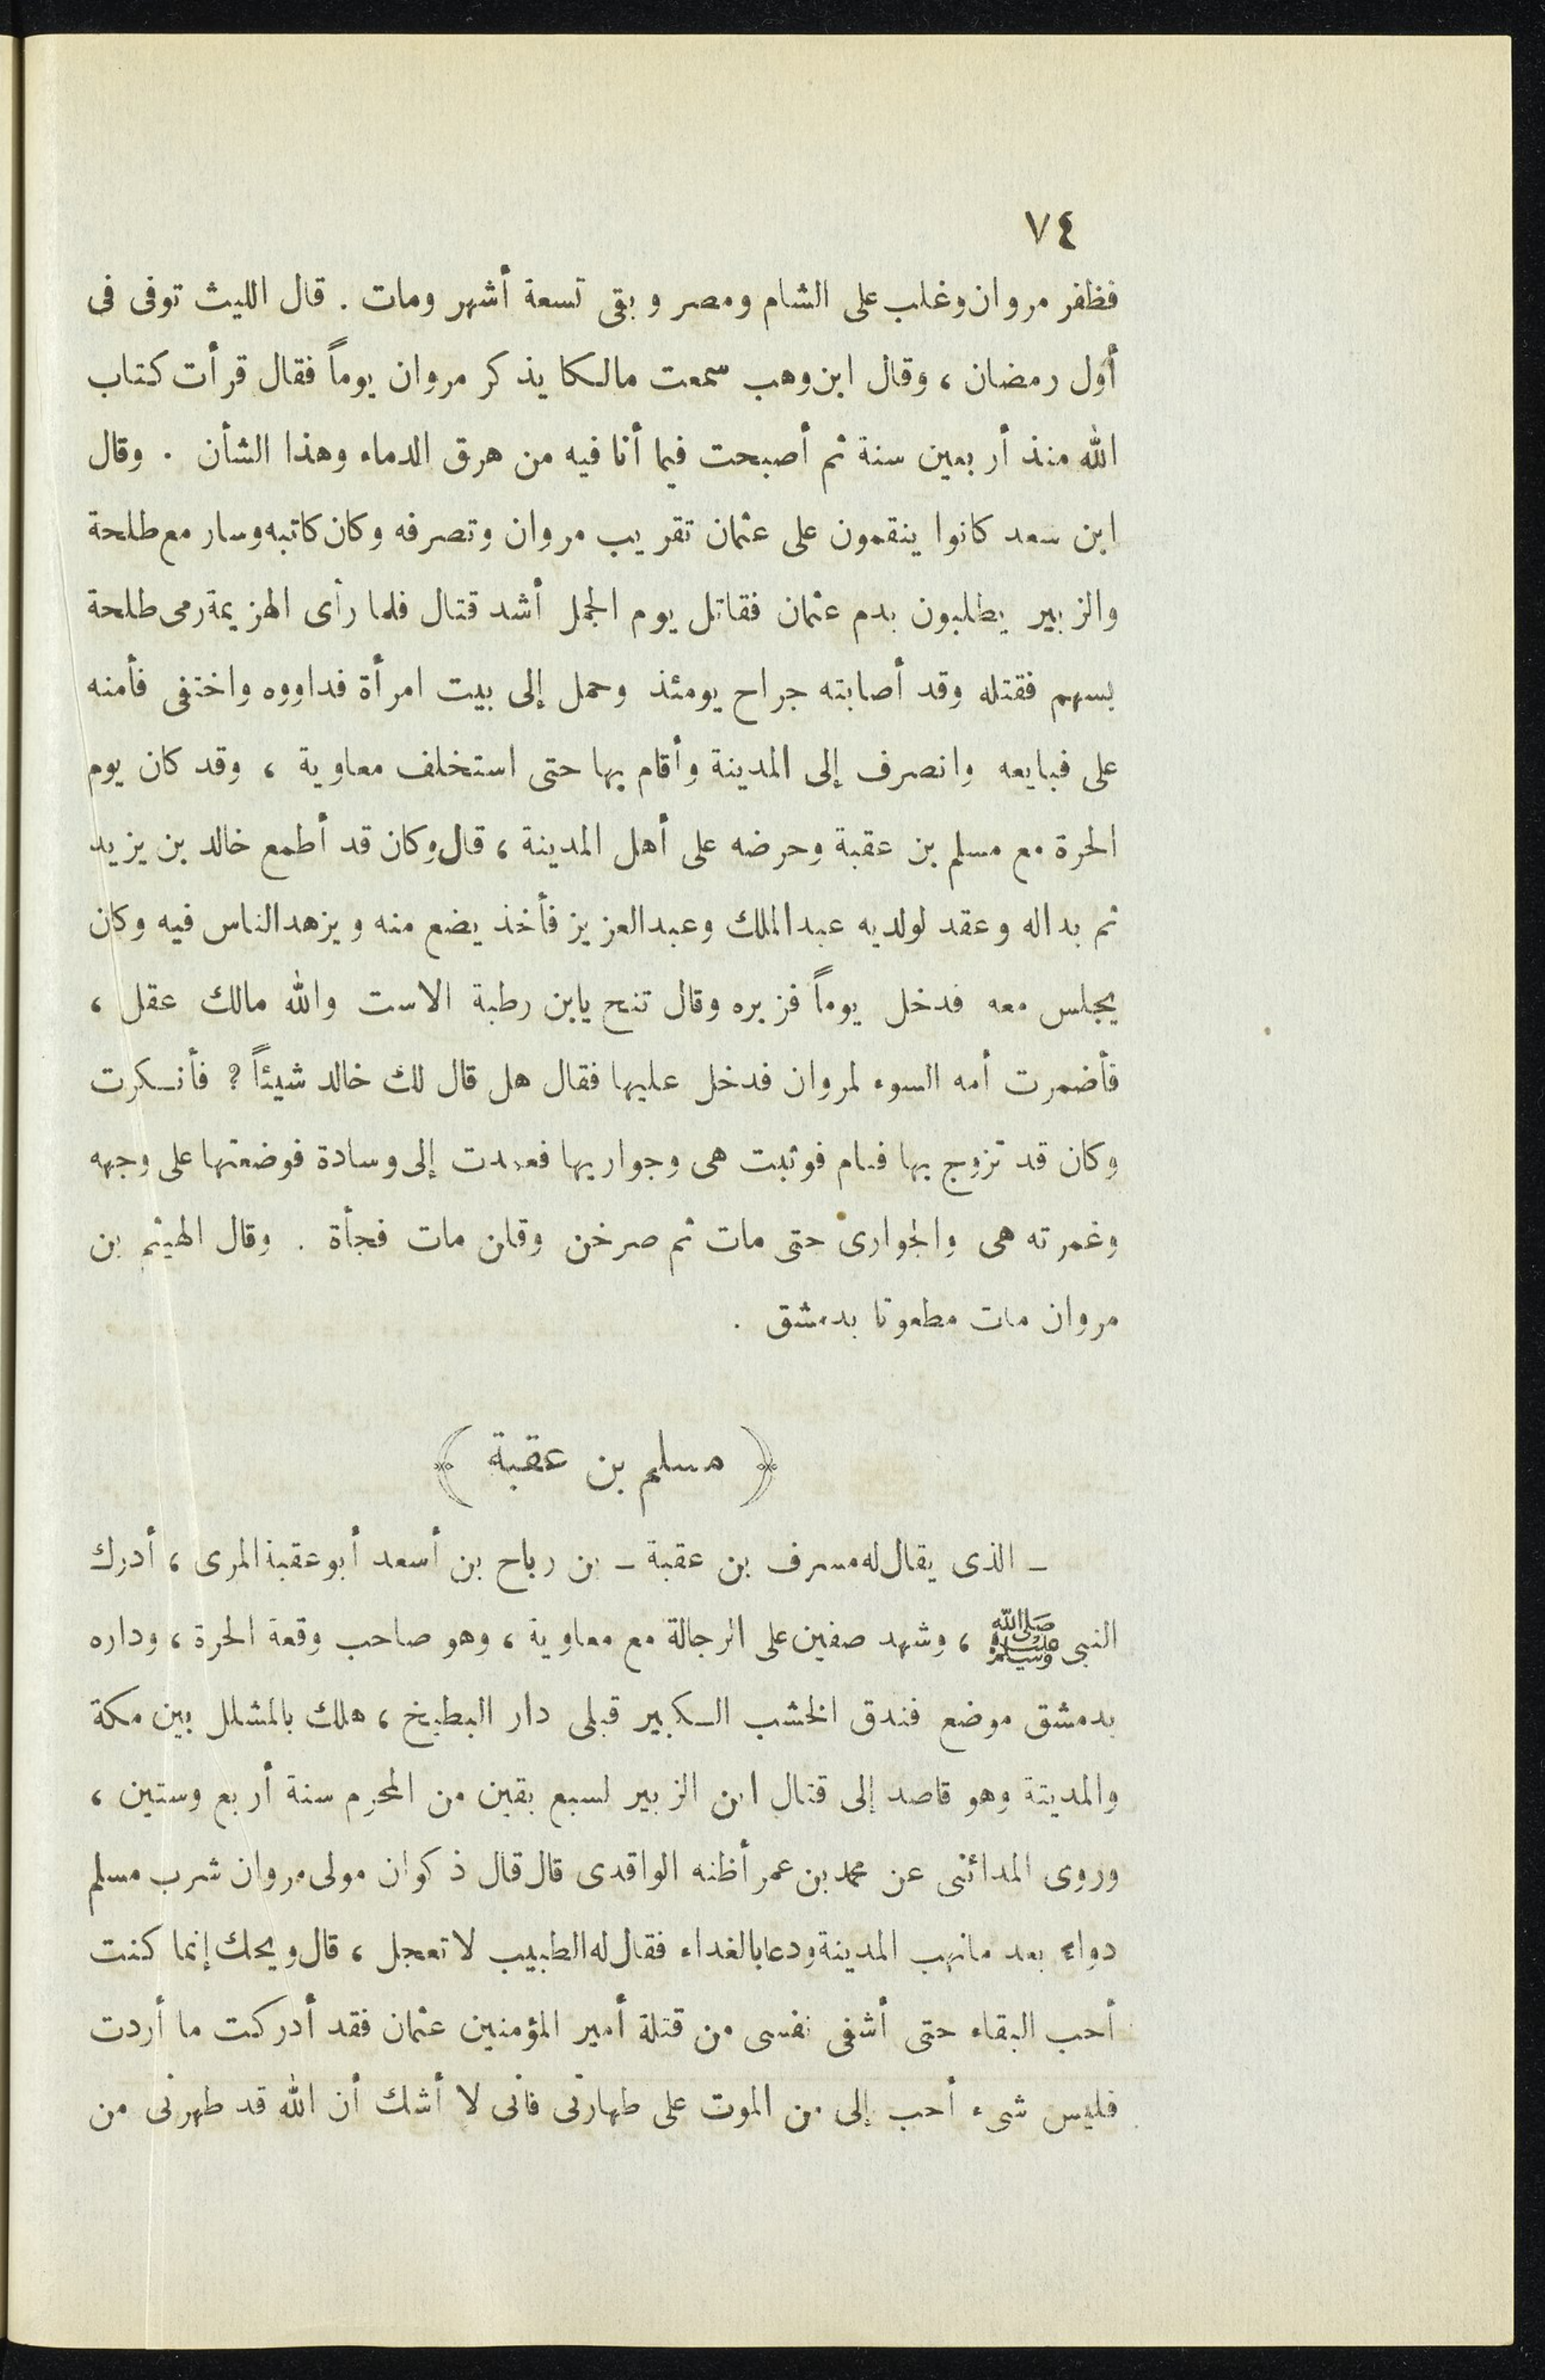 ٧٤
فظفر مروان وغلب على الشام ومصر وبقى تسعة أشهر ومات . قال الليث توفى فى
أول رمضان ، وقال ابن وهب سمعت مالكا يذكر مروان يوماً فقال قرأت كتاب
الله منذ أربعين سنة ثم أصبحت فيما أنا فيه من هرق الدماء وهذا الشأن . وقال
ابن سعد كانوا ينقمون على عثمان تقريب مروان وتصرفه وكان كاتبه وسار مع طلحة
والزبير يطلبون بدم عثمان فقاتل يوم الجمل أشد قتال فلما رأى الهزيمة رمى طلحة
بسهم فقتله وقد أصابته جراح يومئذ وحمل إلى بيت امرأة فداووه واختفى فأمنه
على فبايعه وانصرف إلى المدينة وأقام بها حتى استخلف معاوية ، وقد كان يوم
الحرة مع مسلم بن عقبة وحرضه على أهل المدينة ، قال وكان قد أطمع خالد بن يزيد
ثم بداله وعقد لولديه عبد الملك وعبد العزيز فأخذ يضع منه ويزهد الناس فيه وكان
يجلس معه فدخل يوماً فزبره وقال تنح يابن رطبة الاست والله مالك عقل ،
فأضمرت أمه السوء لمروان فدخل عليها فقال هل قال لك خالد شيئاً ؟ فأنكرت
وكان قد تزوج بها فنام فوثبت هى وجواريها فعمدت إلى وسادة فوضعتها على وجهه
وغمرته هى والجوارى حتى مات ثم صرخن وقلن مات فجأة . وقال الهيثم بن
مروان مات مطعونا بدمشق .
﴿ مسلم بن عقبة ﴾
ـ الذى يقال له مسرف بن عقبة ـ بن رباح بن أسعد أبو عقبة المرى ، أدرك
النبى ﷺ ، وشهد صفين على الرجالة مع معاوية ، وهو صاحب وقعة الحرة ، وداره
بدمشق موضع فندق الخشب الكبير قبلى دار البطيخ ، هلك بالمشلل بين مكة
والمدينة وهو قاصد إلى قتال ابن الزبير لسبع بقين من المحرم سنة أربع وستين ،
وروى المدائنى عن محمد بن عمر أظنه الواقدى قال قال ذكوان مولى مروان شرب مسلم
دواء بعد مانهب المدينة ودعا بالغداء فقال له الطبيب لا تعجل ، قال ويحك إنما كنت
أحب البقاء حتى أشفى نفسى من قتلة أمير المؤمنين عثمان فقد أدركت ما أردت
فليس شىء أحب إلى من الموت على طهارتى فانى لا أشك أن الله قد طهرنى من